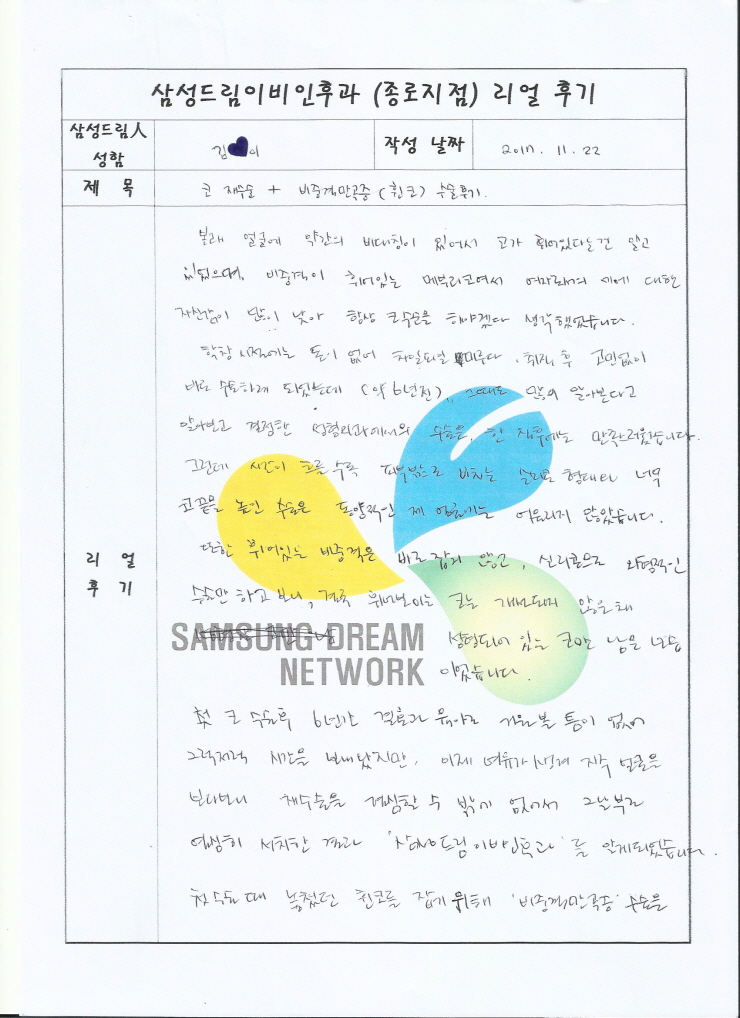 삼성드림이비인후과 (종로지점) 리얼 후기
삼성드림人
성함
김 이
작성 날짜
2017. 11. 22
제 목
코 재수술 + 비중격만곡증 (휜코) 수술후기.
리 얼
후 기
본래 얼굴에 약간의 비대칭이 있어서 코가 휘어있다는건 알고
있었으며, 비중격이 휘어있는 메부리코여서 에 대한
자신감이 많이 낮아 항상 코수술을 해야겠다 생각했었습니다.
학창시절에는 돈이 없어 차일피일 미루다, 취직 후 고민없이
바로 수술하게 되었는데 (약 6년전), 그때도 많이 알아본다고
알아보고 결정한 성형외과에서의 수술은, 한 직후에는 만족스러웠습니다.
그런데 시간이 흐를수록 피부밖으로 비치는 실리콘 형태와 너무
코끝을 높인 수술은 동양적인 제 얼굴에는 어울리지 않았습니다.
또한 휘어있는 비중격은 바로 잡지 않고, 실리콘으로
수술만 하고 보니, 결국 휘어보이는 코는 개선되지 않은채
성형되어 있는 코만 남은 모습
이었습니다.
SAMSUNG DREAM
NETWORK
첫 코 수술후 6년간 결혼과 육아로 거울볼 틈이 없어
그럭저럭 시간을 보내왔지만, 이제 여유가 생겨 자주 얼굴을
보다보니 재수술을 결심할 수 밖에 없어서 그날부로
열심히 서치한 결과 '삼성드림이비인후과'를 알게되었습니다.
첫수술때 놓쳤던 휜코를 잡기위해 '비중격만곡증' 수술을